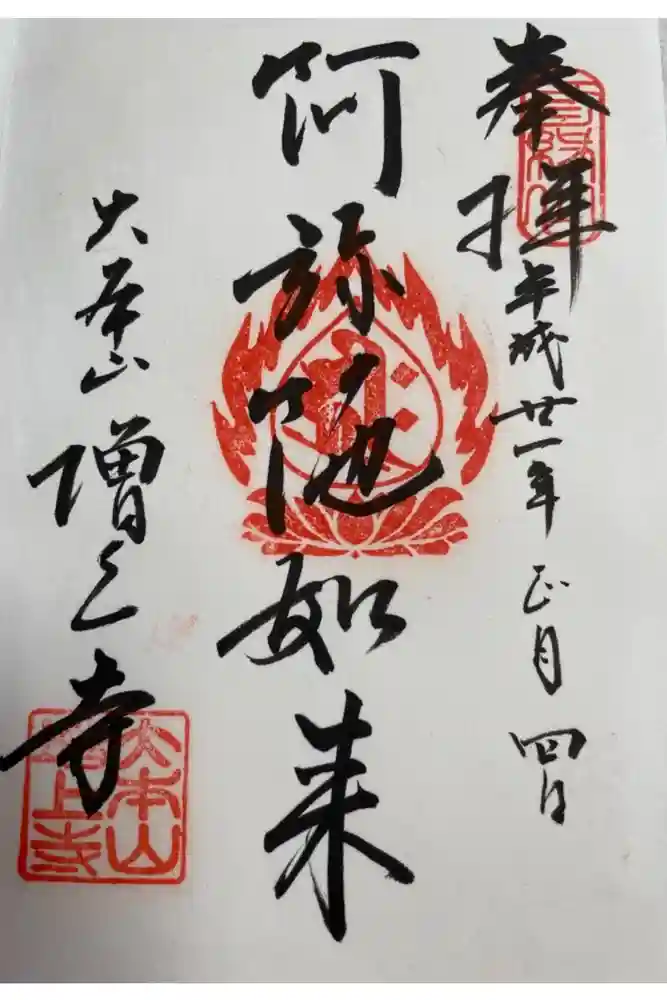 奉拝
平成廿一年正月四日
阿弥陀如来
大本山
増上寺
大本山
増上寺